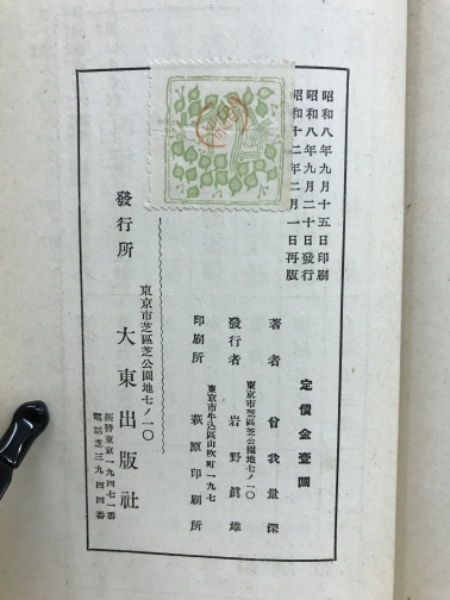 昭和八年九月十五日印刷
昭和八年九月二十日發行
昭和十二年二月一日再版
定價金壹圓
著者 曾我量深
東京市芝區芝公園地七ノ一〇
發行者 岩野眞雄
東京市牛込區山吹町一九七
印刷所 萩原印刷所
東京市芝區芝公園地七ノ一〇
發行所 大東出版社
振替東京一九四七一番
電話芝三九四四番